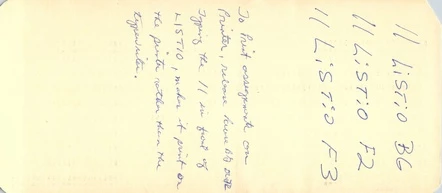 // LISTIO BG
// LISTIO F2
// LISTIO F3
To Print assignments on
Printer,
Typing the // in front of
LISTIO, makes it print on
the printer rather than the
typewriter.